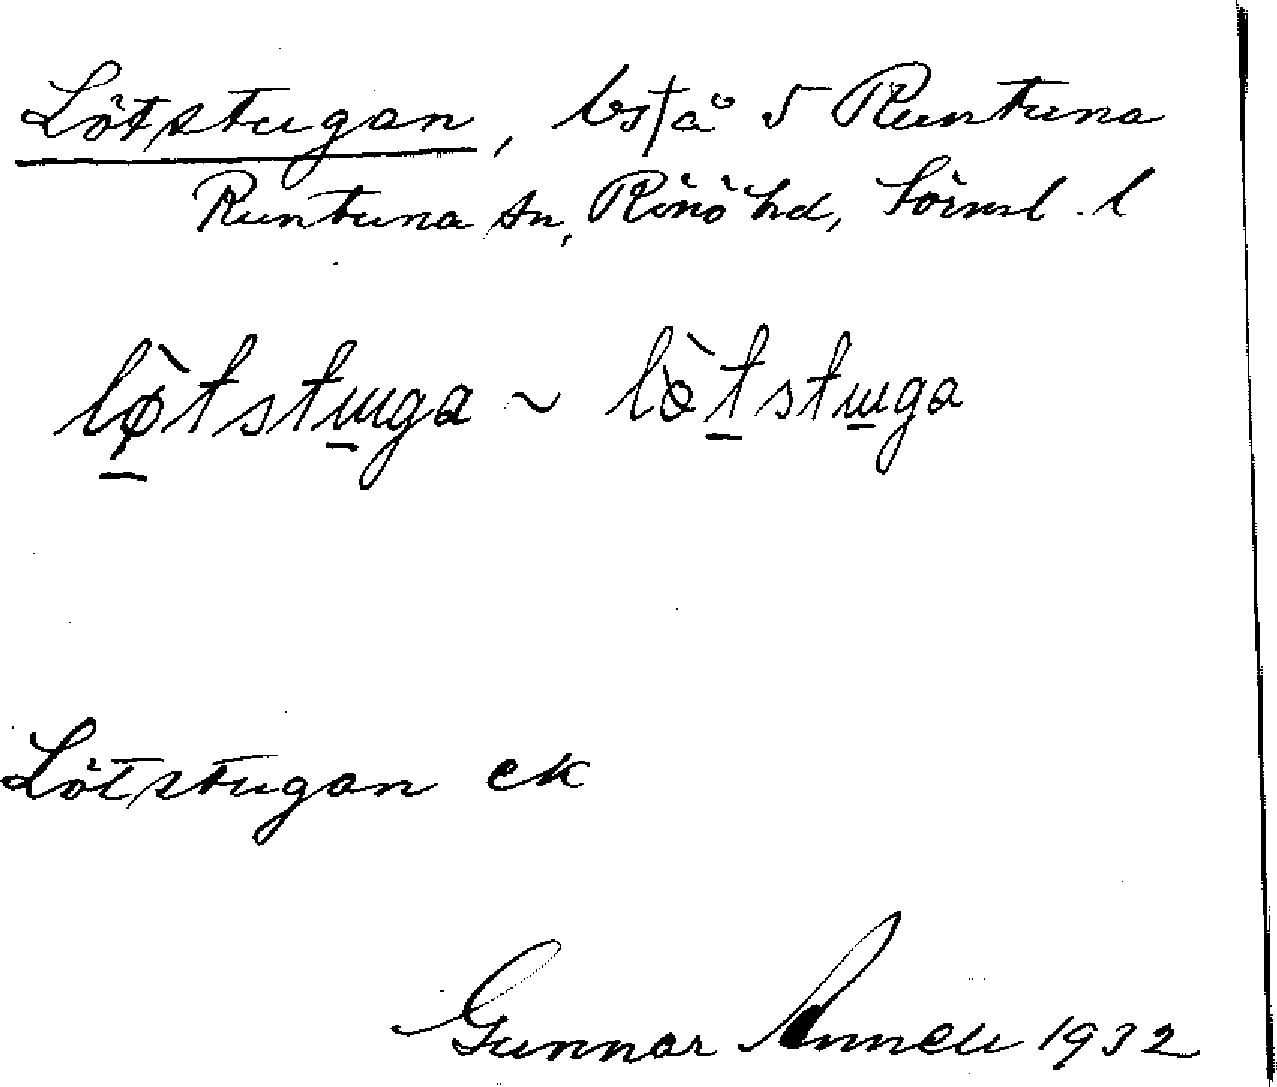 Lötstugan, bs/å 5 Runtuna
Runtuna sn, Rönö hd, Sörml. l
lø̀tstɯga ~ lòtstɯga
Lötstugan ek
Gunnar Annell 1932